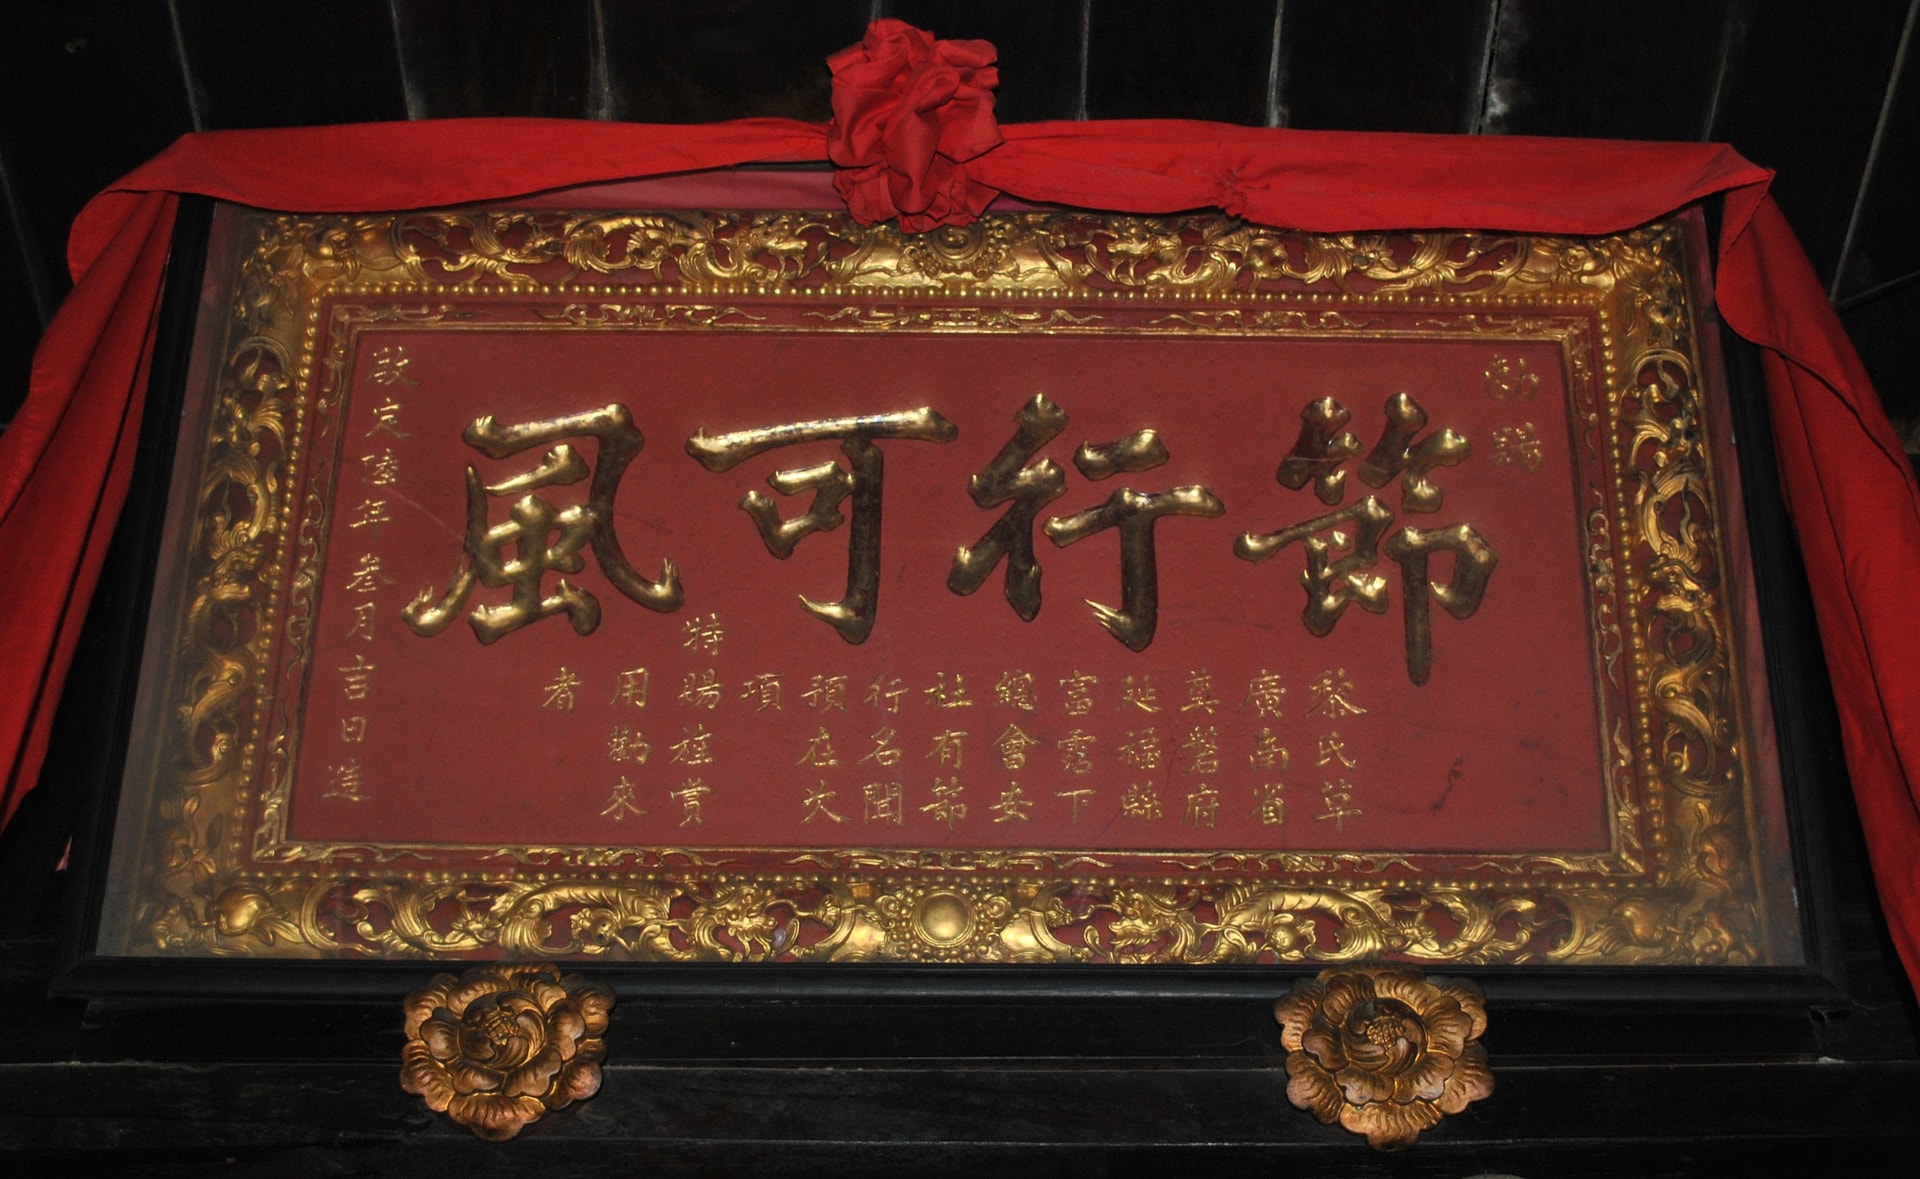 勅賜
節行可風
黎氏
廣南省
奠磐府
延福縣
富霑下
總會安
社有節
行名聞
預在次
項
特賜旌賞
用勸來
者
啟定陸年叁月吉日造